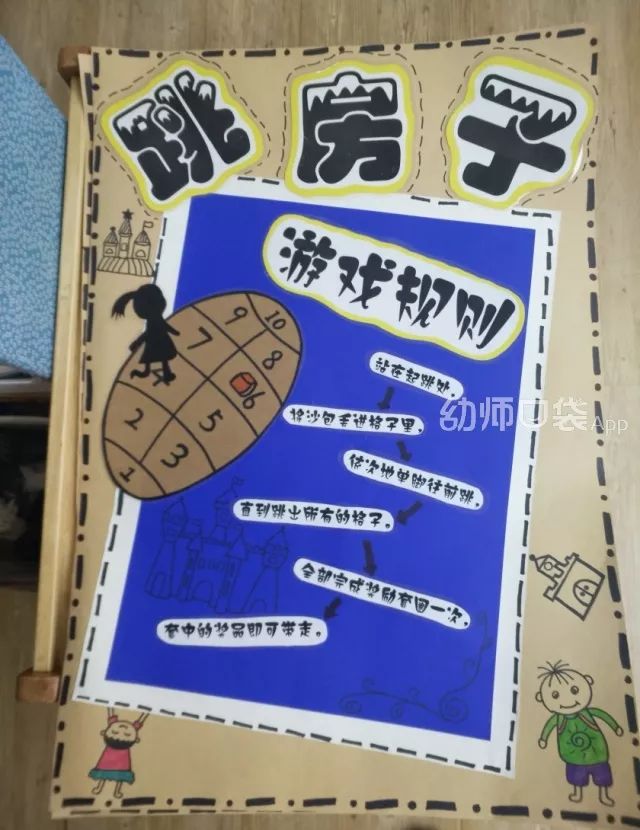 跳房子
游戏规则
站在起跳处。
将沙包丢进格子里。
依次地单脚往前跳。
直到跳出所有的格子。
全部完成奖励套圈一次。
套中的奖品即可带走。
9 10
7 8
6
2 5
1 3
幼师口袋App